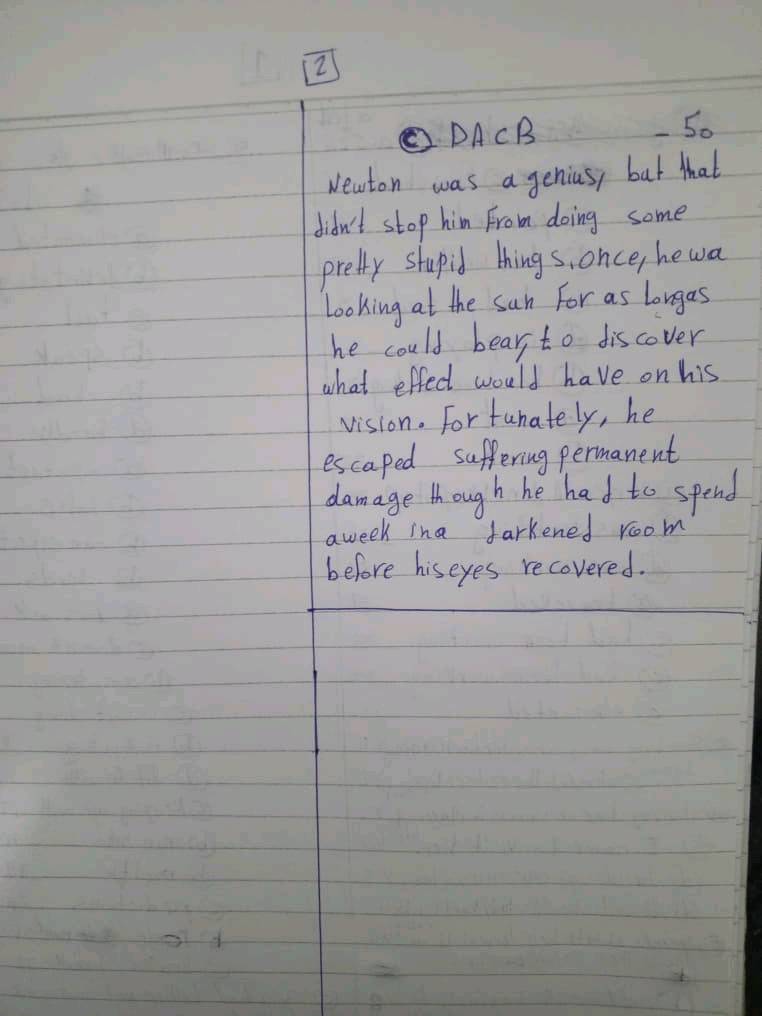 2
C DACB - 50
Newton was a genius, but that
didn't stop him From doing some
pretty stupid things. once, he wa
Looking at the sun For as Longas
he could bear, to discover
what effect would have on his
vision. Fortunately, he
escaped suffering permanent
damage though he had to spend
aweek ina darkened room
before hiseyes recovered.